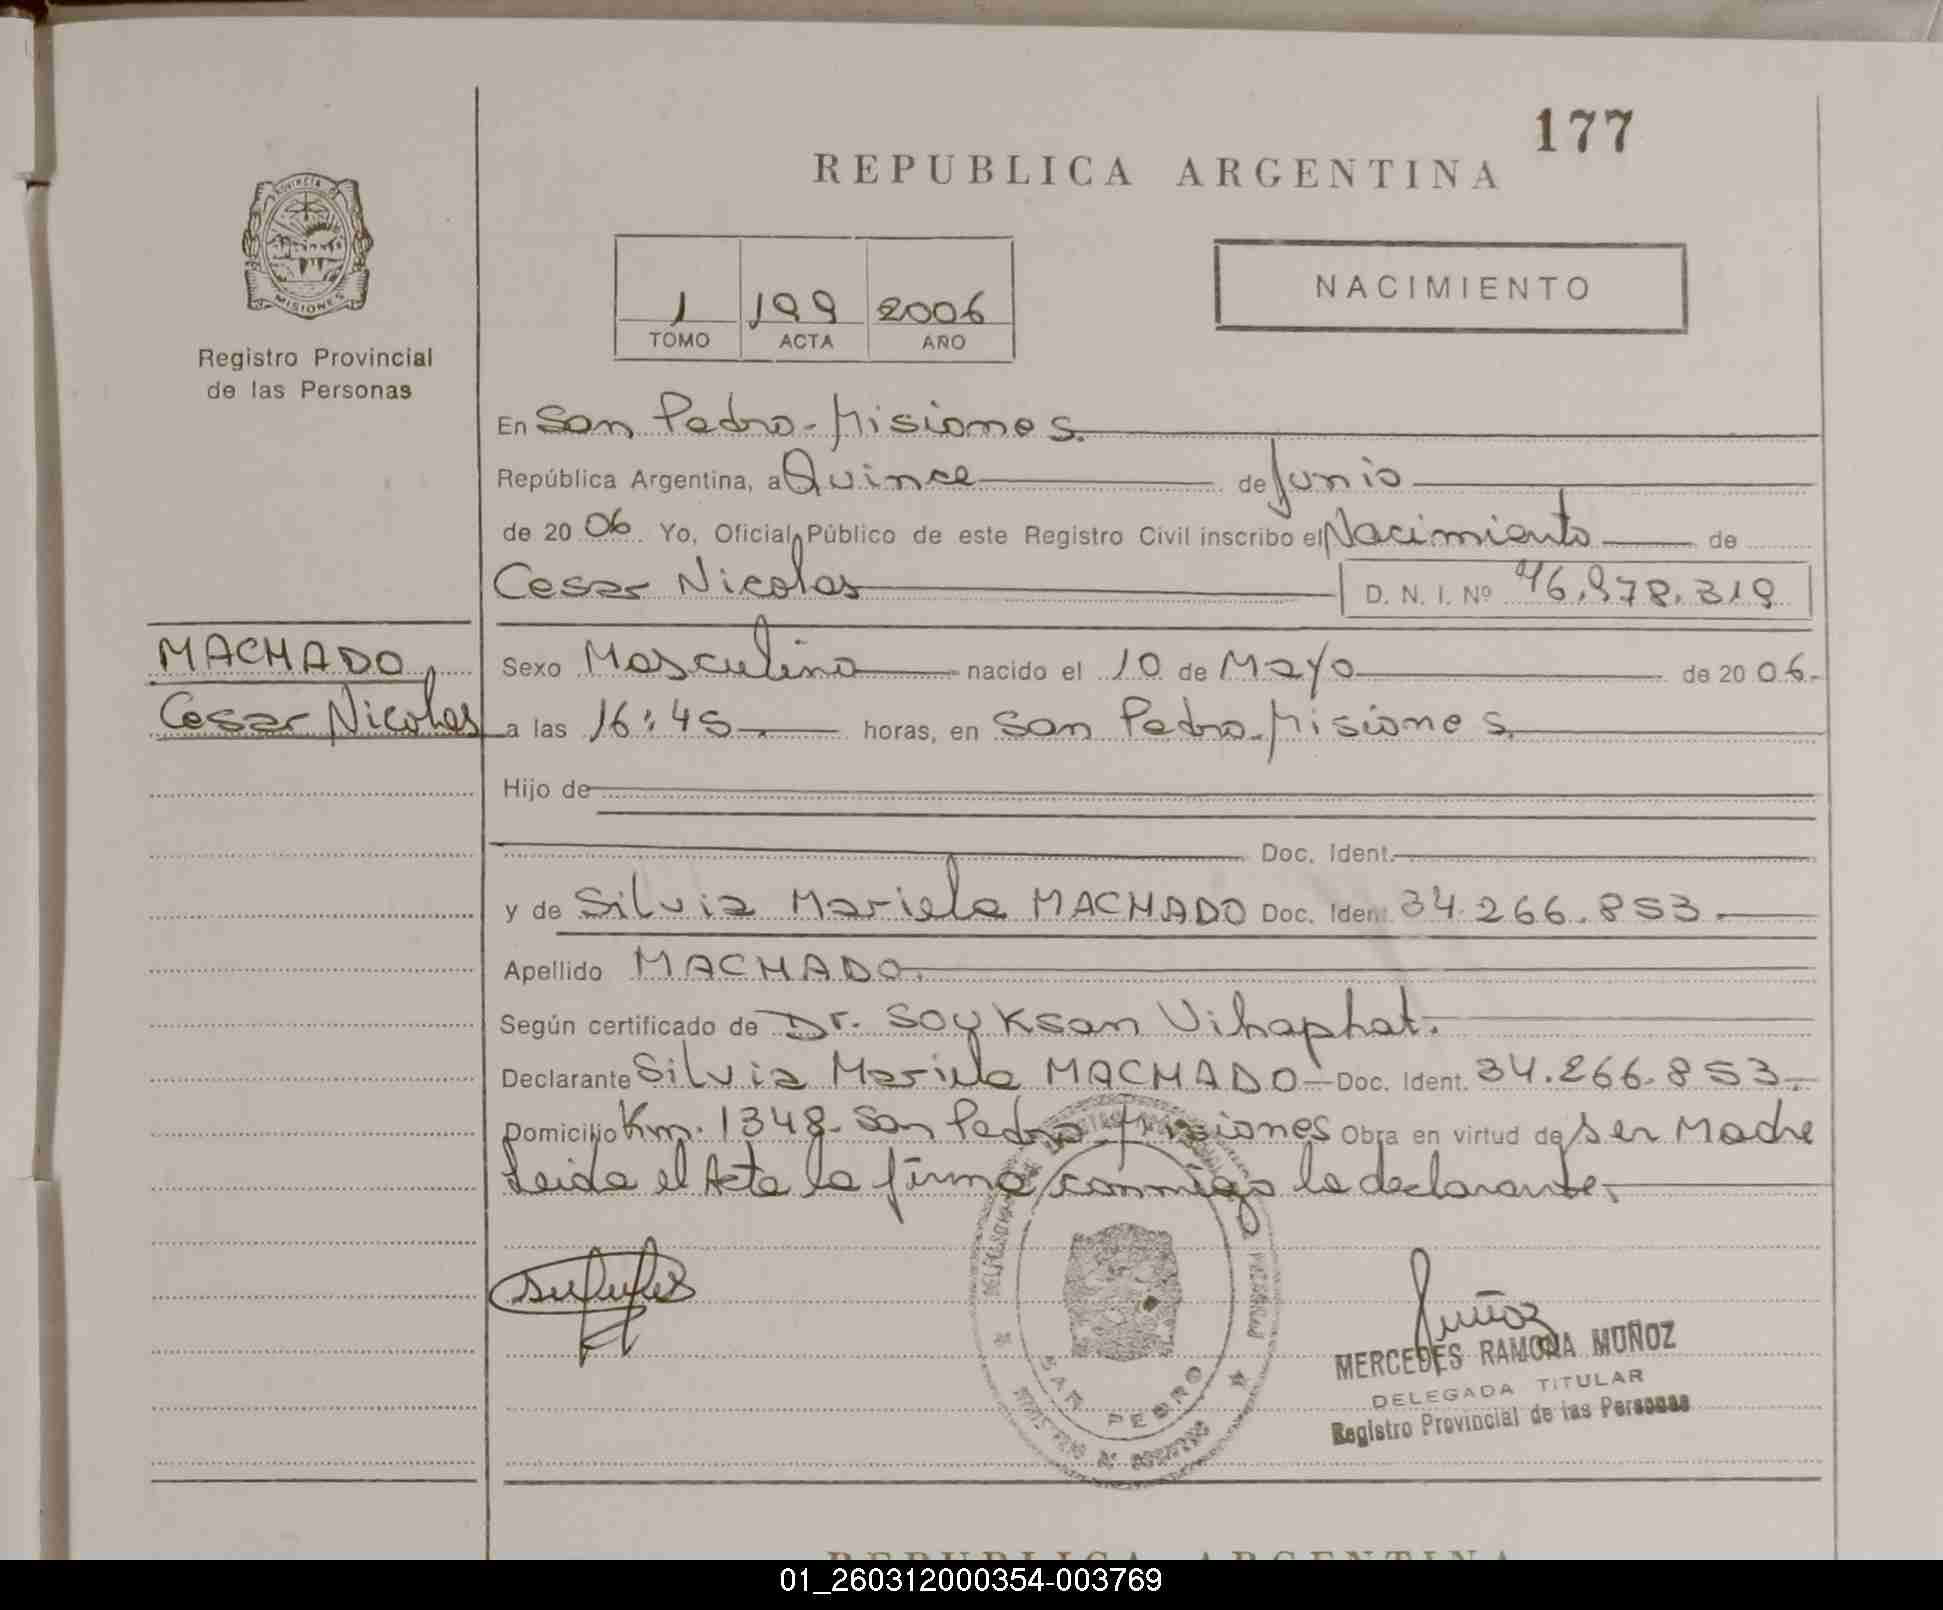 177
REPUBLICA ARGENTINA
PROVINCIA DE
MISIONES
Registro Provincial
de las Personas
1 199 2006
TOMO ACTA AÑO
NACIMIENTO
En San Pedro - Misiones.
República Argentina, a Quince de Junio
de 20 06 Yo, Oficial Público de este Registro Civil inscribo el Nacimiento de
Cesar Nicolas D. N. I. Nº 46.978.319
MACHADO
Cesar Nicolas
Sexo Masculino nacido el 10 de Mayo de 20 06.
a las 16:45 horas, en San Pedro - Misiones.
Hijo de
Doc. Ident.
y de Silvia Mariela MACHADO Doc. Ident. 34.266.853.
Apellido MACHADO.
Según certificado de Dr. Soyksan Vihaphat.
Declarante Silvia Mariela MACHADO - Doc. Ident. 34.266.853.
Domicilio Km. 1348 - San Pedro - Misiones Obra en virtud de ser Madre
Leida el Acta la firma conmigo la declarante.
SAN PEDRO
Muñoz
MERCEDES RAMONA MUÑOZ
DELEGADA TITULAR
Registro Provincial de las Personas
REPUBLICA ARGENTINA
01_260312000354-003769